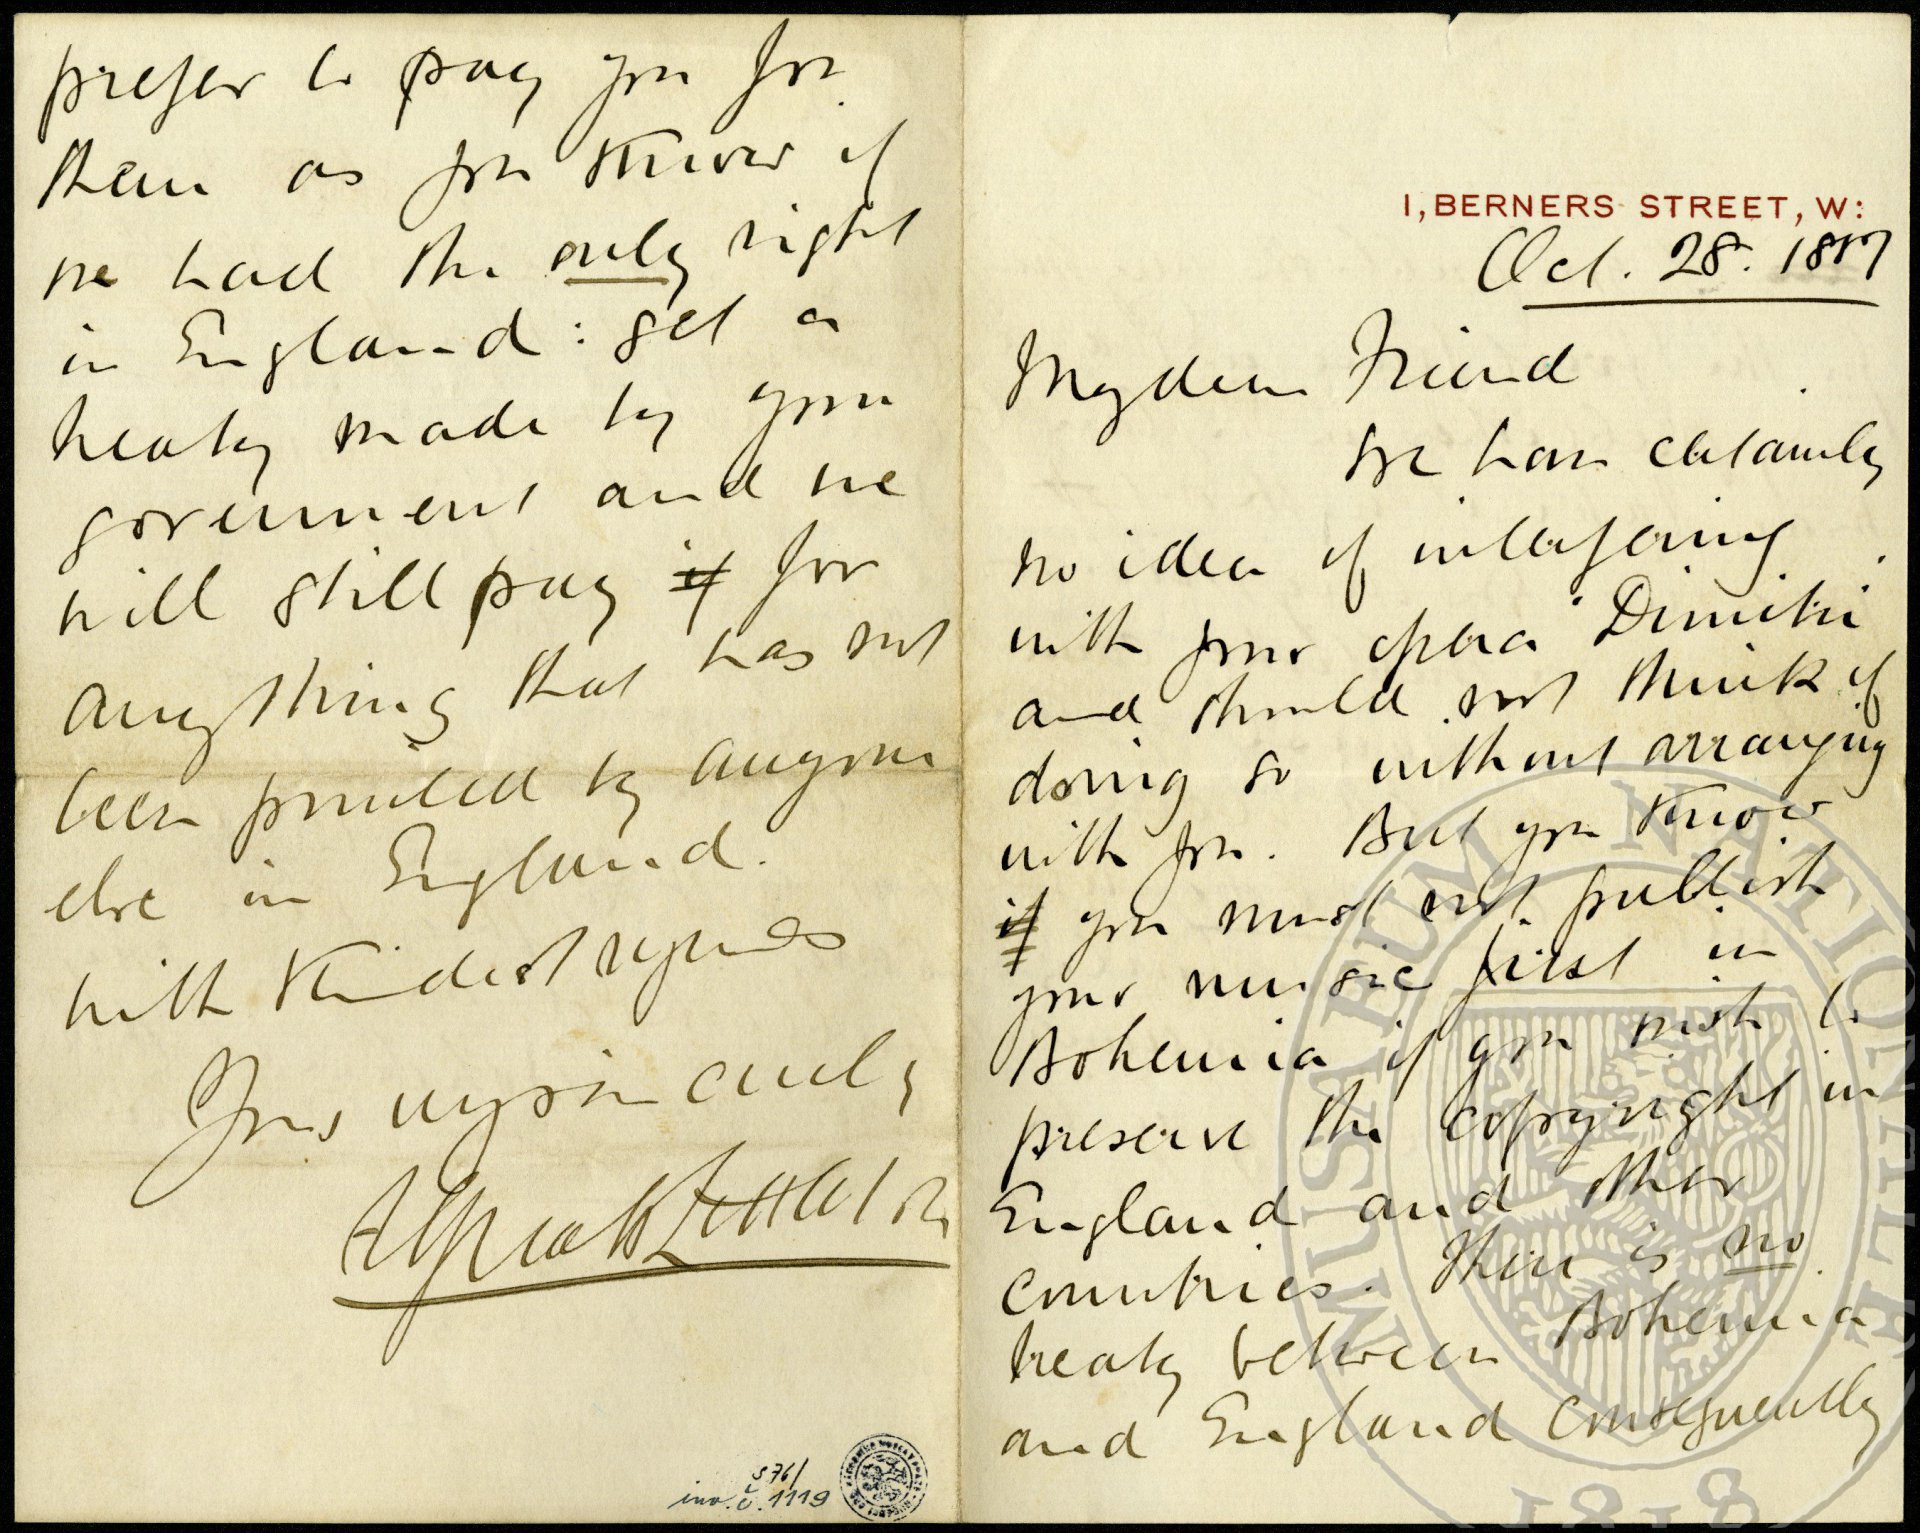 1, BERNERS STREET, W:
Oct. 28. 1887
My dear Friend
we have certainly
no idea of interfering
with your opera "Dimitri
and should not think of
doing so without arranging
with you. But you know
if you must not publish
your music first in
Bohemia if you wish to
preserve the copyright in
England and other
countries. There is no
treaty between Bohemia
and England consequently
prefer to pay you for
them as you know if
we had the only right
in England: get a
treaty made by your
government and we
will still pay if for
anything that has not
been printed by anyone
else in England.
with kindest regards
Yours very sincerely
Alfred H Littleton
576/
inv. č. 1119
MUSAEUM NATIONALE
1818